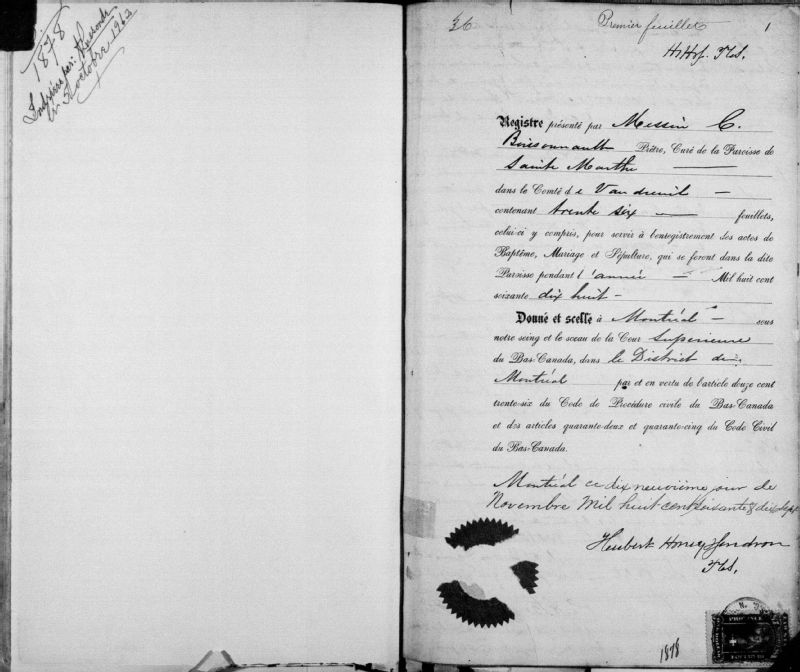 1878
36
Premier feuillet
1
Registre présenté par Messire C.
Boissonnault Prêtre, Curé de la Paroisse de
Sainte Marthe
dans le Comté de Vaudreuil —
contenant trente six — feuillets,
celui-ci y compris, pour servir à l'enregistrement des actes de
Baptême, Mariage et Sépulture, qui se feront dans la dite
Paroisse pendant l'année — Mil huit cent
soixante dix huit —
Donné et scellé à Montréal — sous
notre seing et le sceau de la Cour Supérieure
du Bas-Canada, dans le District de
Montréal par et en vertu de l'article douze cent
trente-six du Code de Procédure civile du Bas-Canada
et des articles quarante-deux et quarante-cinq du Code Civil
du Bas-Canada.
Montréal ce dix neuvième jour de
Novembre Mil huit cent soixante & dix sept
Hubert
1878
PROVINCE